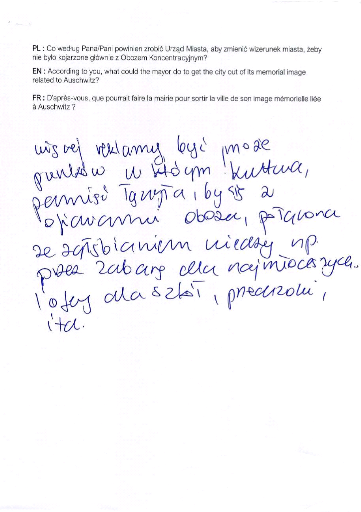 PL : Co według Pana/Pani powinien zrobić Urząd Miasta, aby zmienić wizerunek miasta, żeby
nie było kojarzone głównie z Obozem Koncentracyjnym?
EN : According to you, what could the mayor do to get the city out of its memorial image
related to Auschwitz?
FR : D'après-vous, que pourrait faire la mairie pour sortir la ville de son image mémorielle liée
à Auschwitz ?
więcej reklamy być może
punktów w którym kultura,
pamięć łączyła, by się z
obozu, połączona
ze zgłębianiem wiedzy np.
przez zabawę dla najmłodszych.
dla szkół, przedszkoli,
itd.